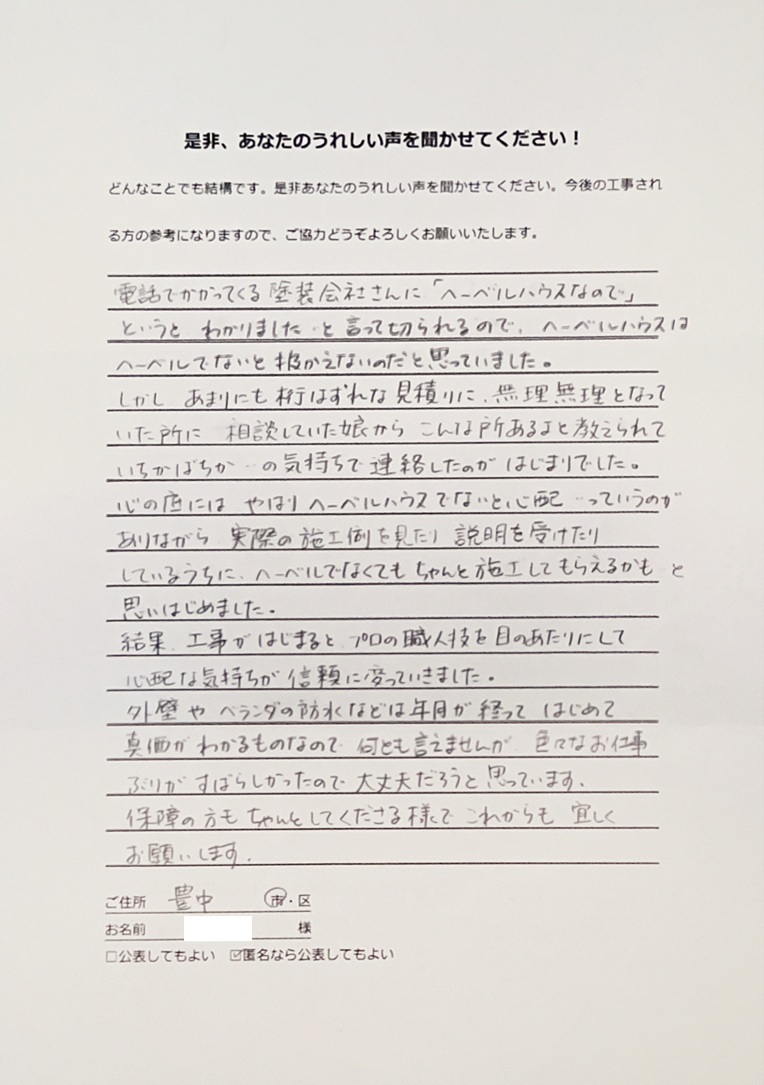 是非、あなたのうれしい声を聞かせてください！
どんなことでも結構です。是非あなたのうれしい声を聞かせてください。今後の工事され
る方の参考になりますので、ご協力どうぞよろしくお願いいたします。
電話でかかってくる塗装会社さんに「ヘーベルハウスなので」
というと わかりました と言って切られるので、ヘーベルハウスは
ヘーベルでないと扱かえないのだと思っていました。
しかし あまりにも桁はずれな見積りに、無理無理となって
いた所に 相談していた娘から こんな所あるよと教えられて
いちかばちか…の気持ちで連絡したのが はじまりでした。
心の底には やはりヘーベルハウスでないと心配…っていうのが
ありながら 実際の施工例を見たり 説明を受けたり
しているうちに、ヘーベルでなくても ちゃんと施工してもらえるかも と
思いはじめました。
結果、工事がはじまると、プロの職人技を目のあたりにして
心配な気持ちが信頼に変っていきました。
外壁や ベランダの防水などは年月が経って はじめて
真価がわかるものなので 何とも言えませんが、色々なお仕事
ぶりがすばらしかったので大丈夫だろうと思っています。
保障の方もちゃんとしてくださる様で これからも 宜しく
お願いします。
ご住所 豊中 市・区
お名前 様
□公表してもよい ☑匿名なら公表してもよい